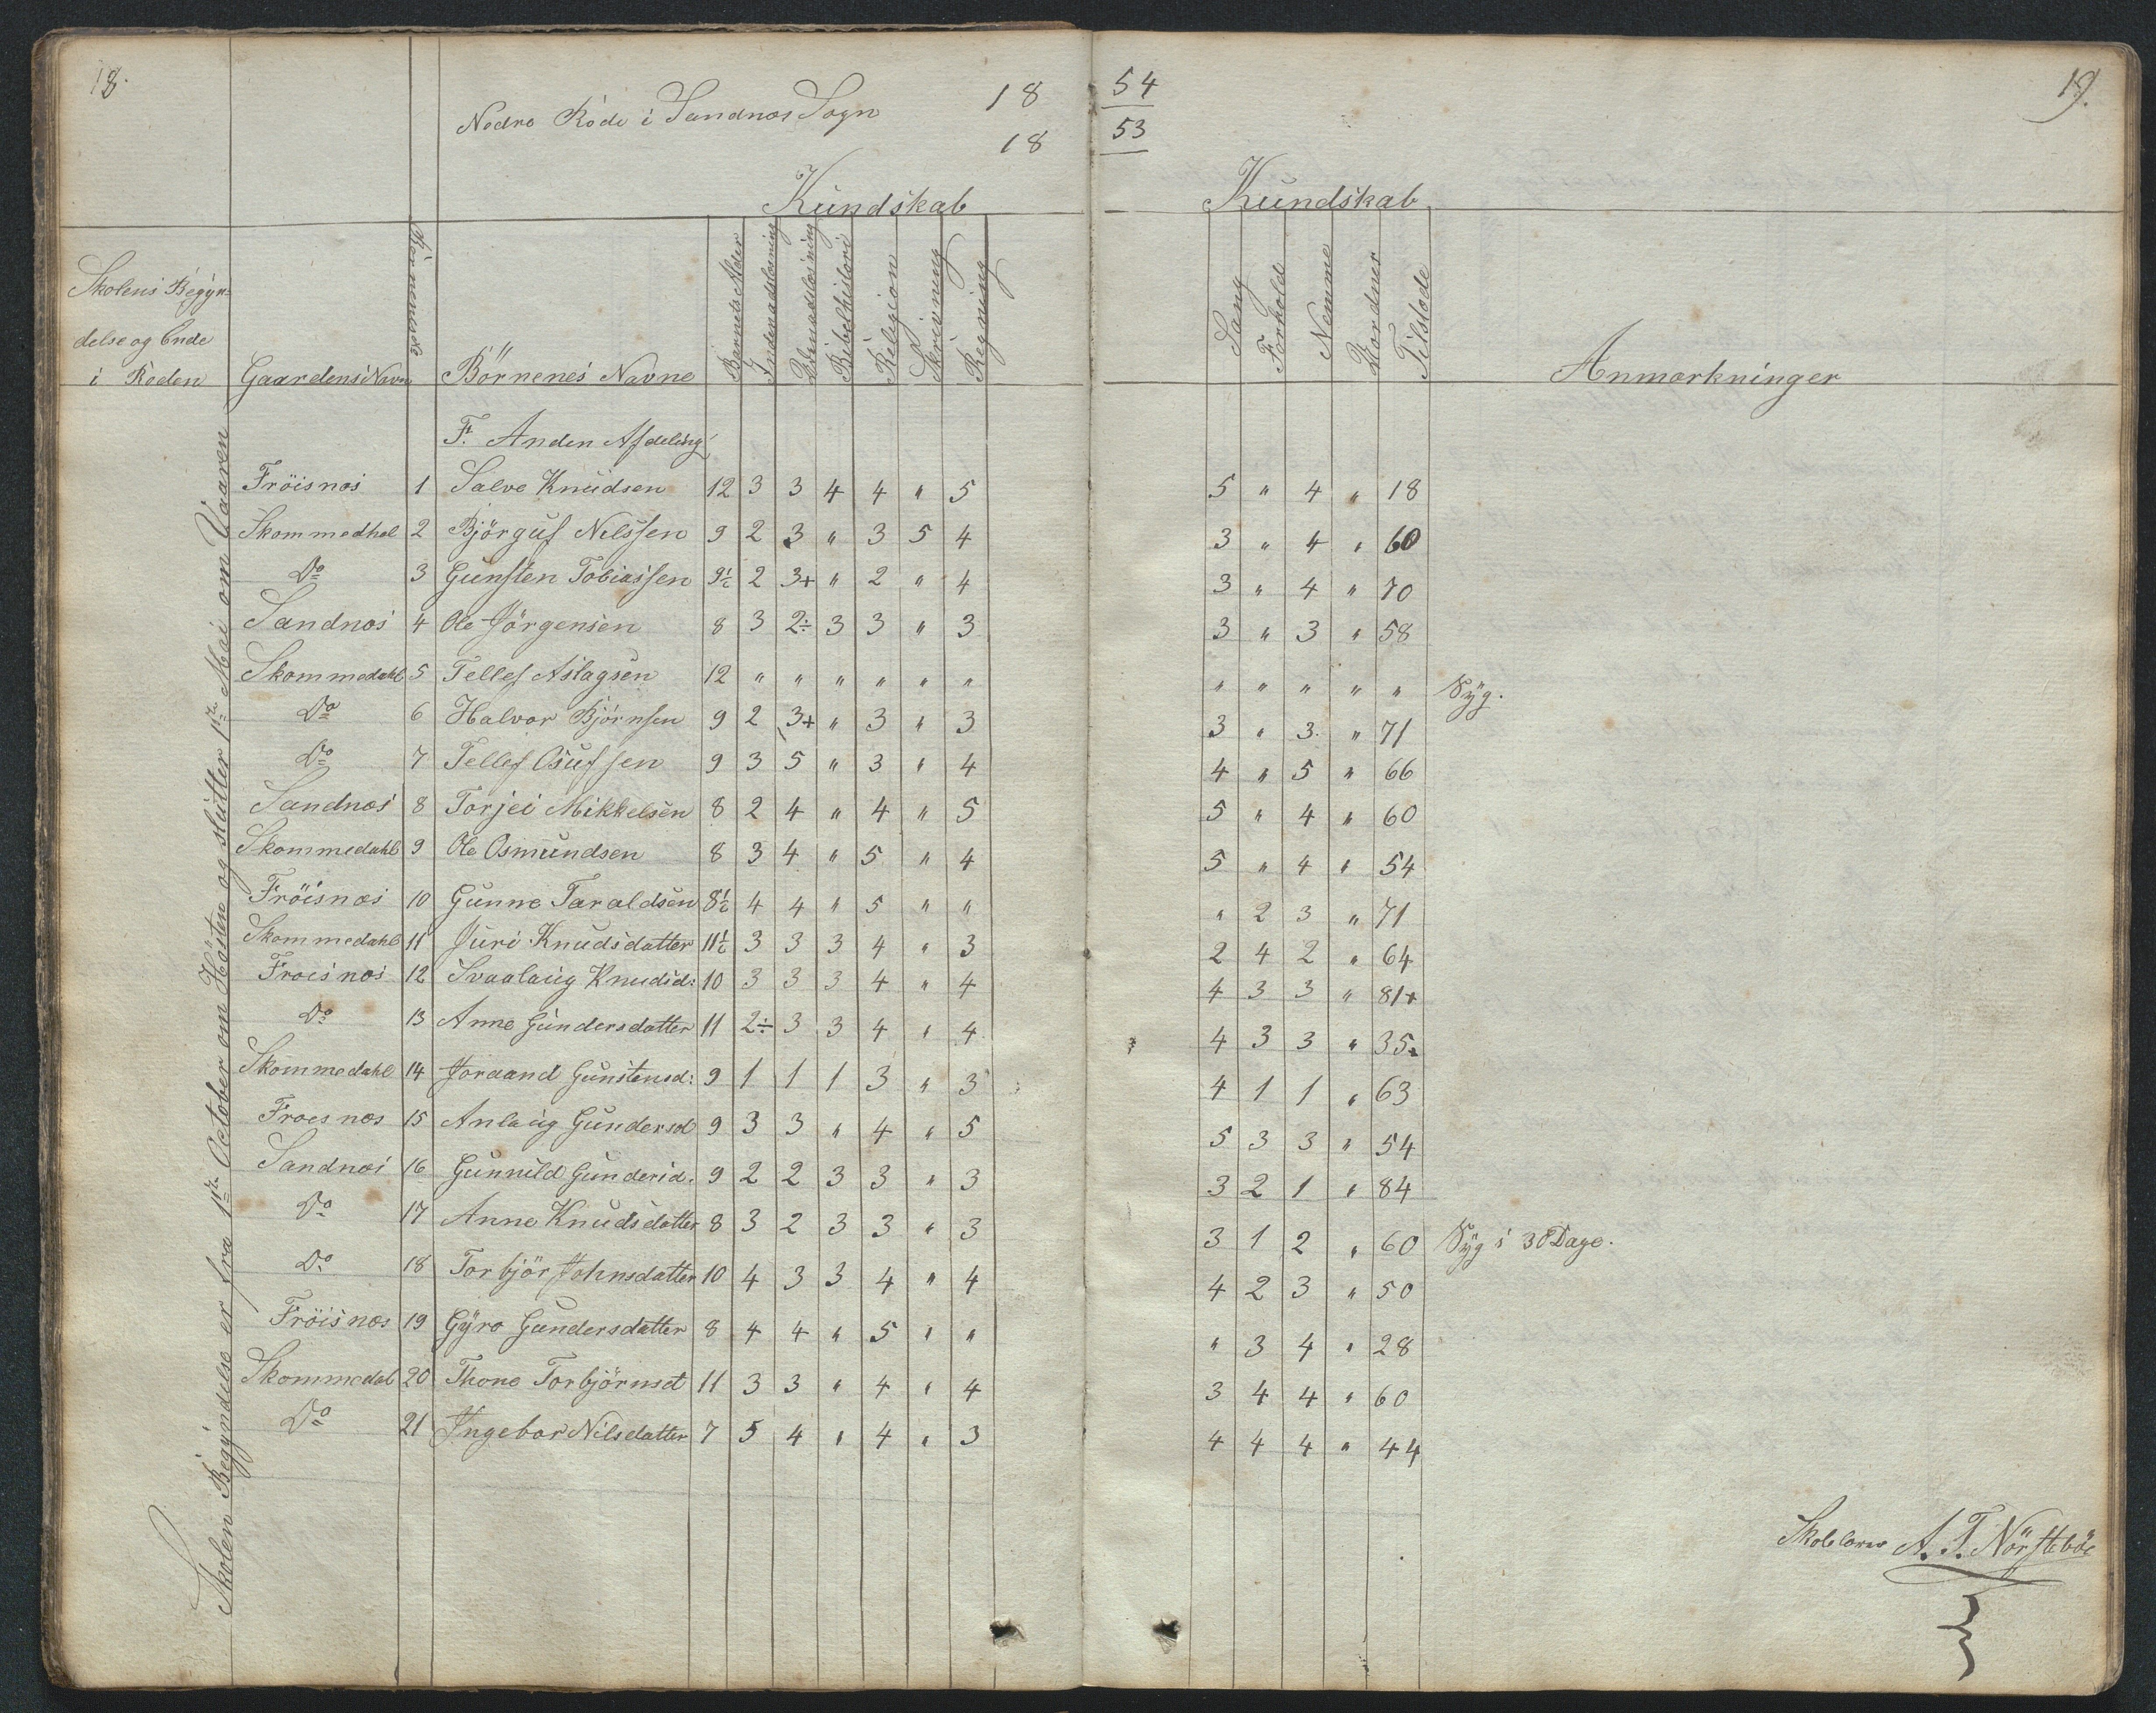 18.
19.
Nedre Rode i Sandnæs Sogn 18 54
18 53
Kundskab
Kundskab
Skolens Begyn-
delse og Ende
i Roden
Gaardens Navn
Börnenes Navne
Barnets Alder
Indenadslæsning
Udenadslæsning
Bibelhistori
Religion
Skrivning
Regning
Sang
Forhold
Nemme
Tilstede
Anmærkninger
Skolen Begyndelse er fra 1te October om Hösten og slutter 1te Mai om Vaaren
F. Anden Afdeling
Fröisnæs 1 Salve Knudsen 12 3 3 4 4 " 5 5 " 4 " 18
Skommedhal 2 Björguf Nilssen 9 2 3 " 3 5 4 3 " 4 " 60
Do 3 Gunsten Tobiassen 9½ 2 3+ " 2 " 4 3 " 4 " 70
Sandnæs 4 Ole Jörgensen 8 3 2÷ 3 3 " 3 3 " 3 " 58
Skommedahl 5 Tellef Aslagsen 12 " " " " " " " " " " " Syg.
Do 6 Halvor Björnsen 9 2 3+ " 3 " 3 3 " 3. " 71
Do 7 Tellef Osufsen 9 3 5 " 3 " 4 4 " 5 " 66
Sandnæs 8 Torjei Mikkelsen 8 2 4 " 4 " 5 5 " 4 " 60
Skommedahl 9 Ole Osmundsen 8 3 4 " 5 " 4 5 " 4 " 54
Fröisnæs 10 Gunne Taraldsen 8½ 4 4 " 5 " " " 2 3 " 71
Skommedahl 11 Juri Knudsdatter 11½ 3 3 3 4 " 3 2 4 2 " 64
Froisnæs 12 Svaalaug Knudsd: 10 3 3 3 4 " 4 4 3 3 " 81+
Do 13 Anne Gundersdatter 11 2÷ 3 3 4 " 4 4 3 3 " 35
Skommedahl 14 Joraand Gunstensd: 9 1 1 1 3 " 3 4 1 1 " 63
Froesnæs 15 Anlaug Gundersd 9 3 3 " 4 " 5 5 3 3 " 54
Sandnæs 16 Gunnild Gundersd. 9 2 2 3 3 " 3 3 2 1 " 84
Do 17 Anne Knudsdatter 8 3 2 3 3 " 3 3 1 2 " 60 Syg i 30 Dage.
Do 18 Torbjör Johnsdatter 10 4 3 3 4 " 4 4 2 3 " 50
Fröisnæs 19 Gyro Gundersdatter 8 4 4 " 5 " " " 3 4 " 28
Skommedal 20 Thone Torbjörnsd 11 3 3 " 4 " 4 3 4 4 " 60
Do 21 Ingebor Nilsdatter 7 5 4 " 4 " 3 4 4 4 " 44
Skolelærer A. T. Nörsteböe